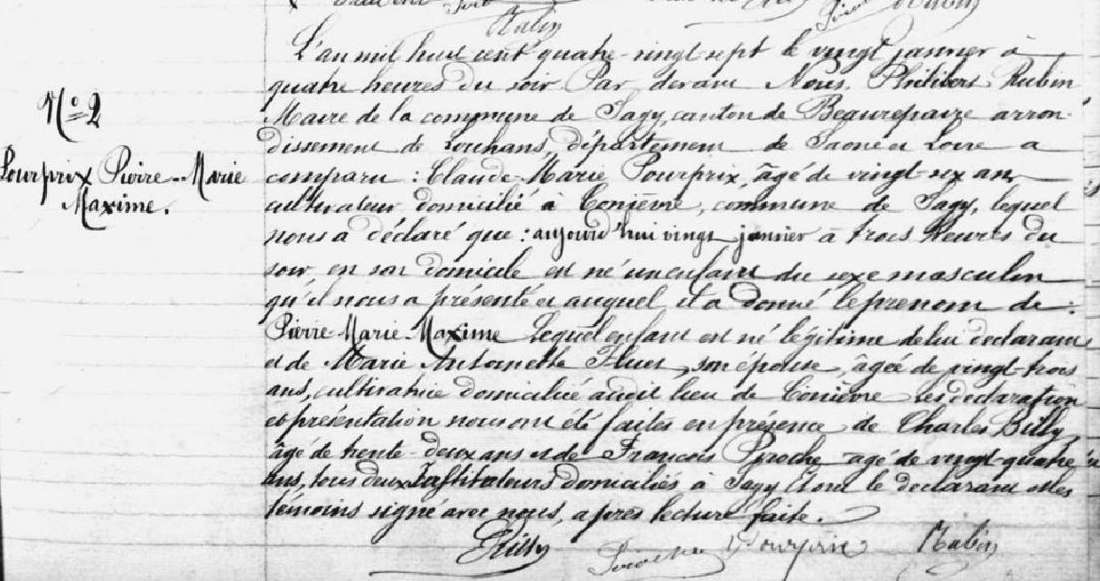 Rubin
L'an mil huit cent quatre-vingt sept le vingt janvier à
quatre heures du soir Par devant Nous, Philibert Rubin
Maire de la commune de Sagy, canton de Beaurepaire arron-
dissement de Louhans, département de Saône et Loire a
comparu : Claude-Marie Pourprix, âgé de vingt-six ans
cultivateur domicilié à commune de Sagy, lequel
nous a déclaré que : aujourd'hui vingt janvier à trois heures du
soir, en son domicile est né un enfant du sexe masculin
qu'il nous a présenté et auquel il a donné le prenom de :
Pierre-Marie-Maxime Lequel enfant est né légitime de lui declarant
et de Marie Antoinette son épouse, âgée de vingt-trois
ans, cultivatrice domiciliée audit lieu de Les declaration
et présentation nous ont été faites en présence de Charles Billy
âgé de trente-deux ans et de François âgé de vingt-quatre
ans, tous deux Instituteurs domiciliés à Sagy Et ont le declarant et les
témoins signé avec nous, après lecture faite.
Billy Pourprix Rubin
N° 2
Pourprix Pierre-Marie
Maxime.